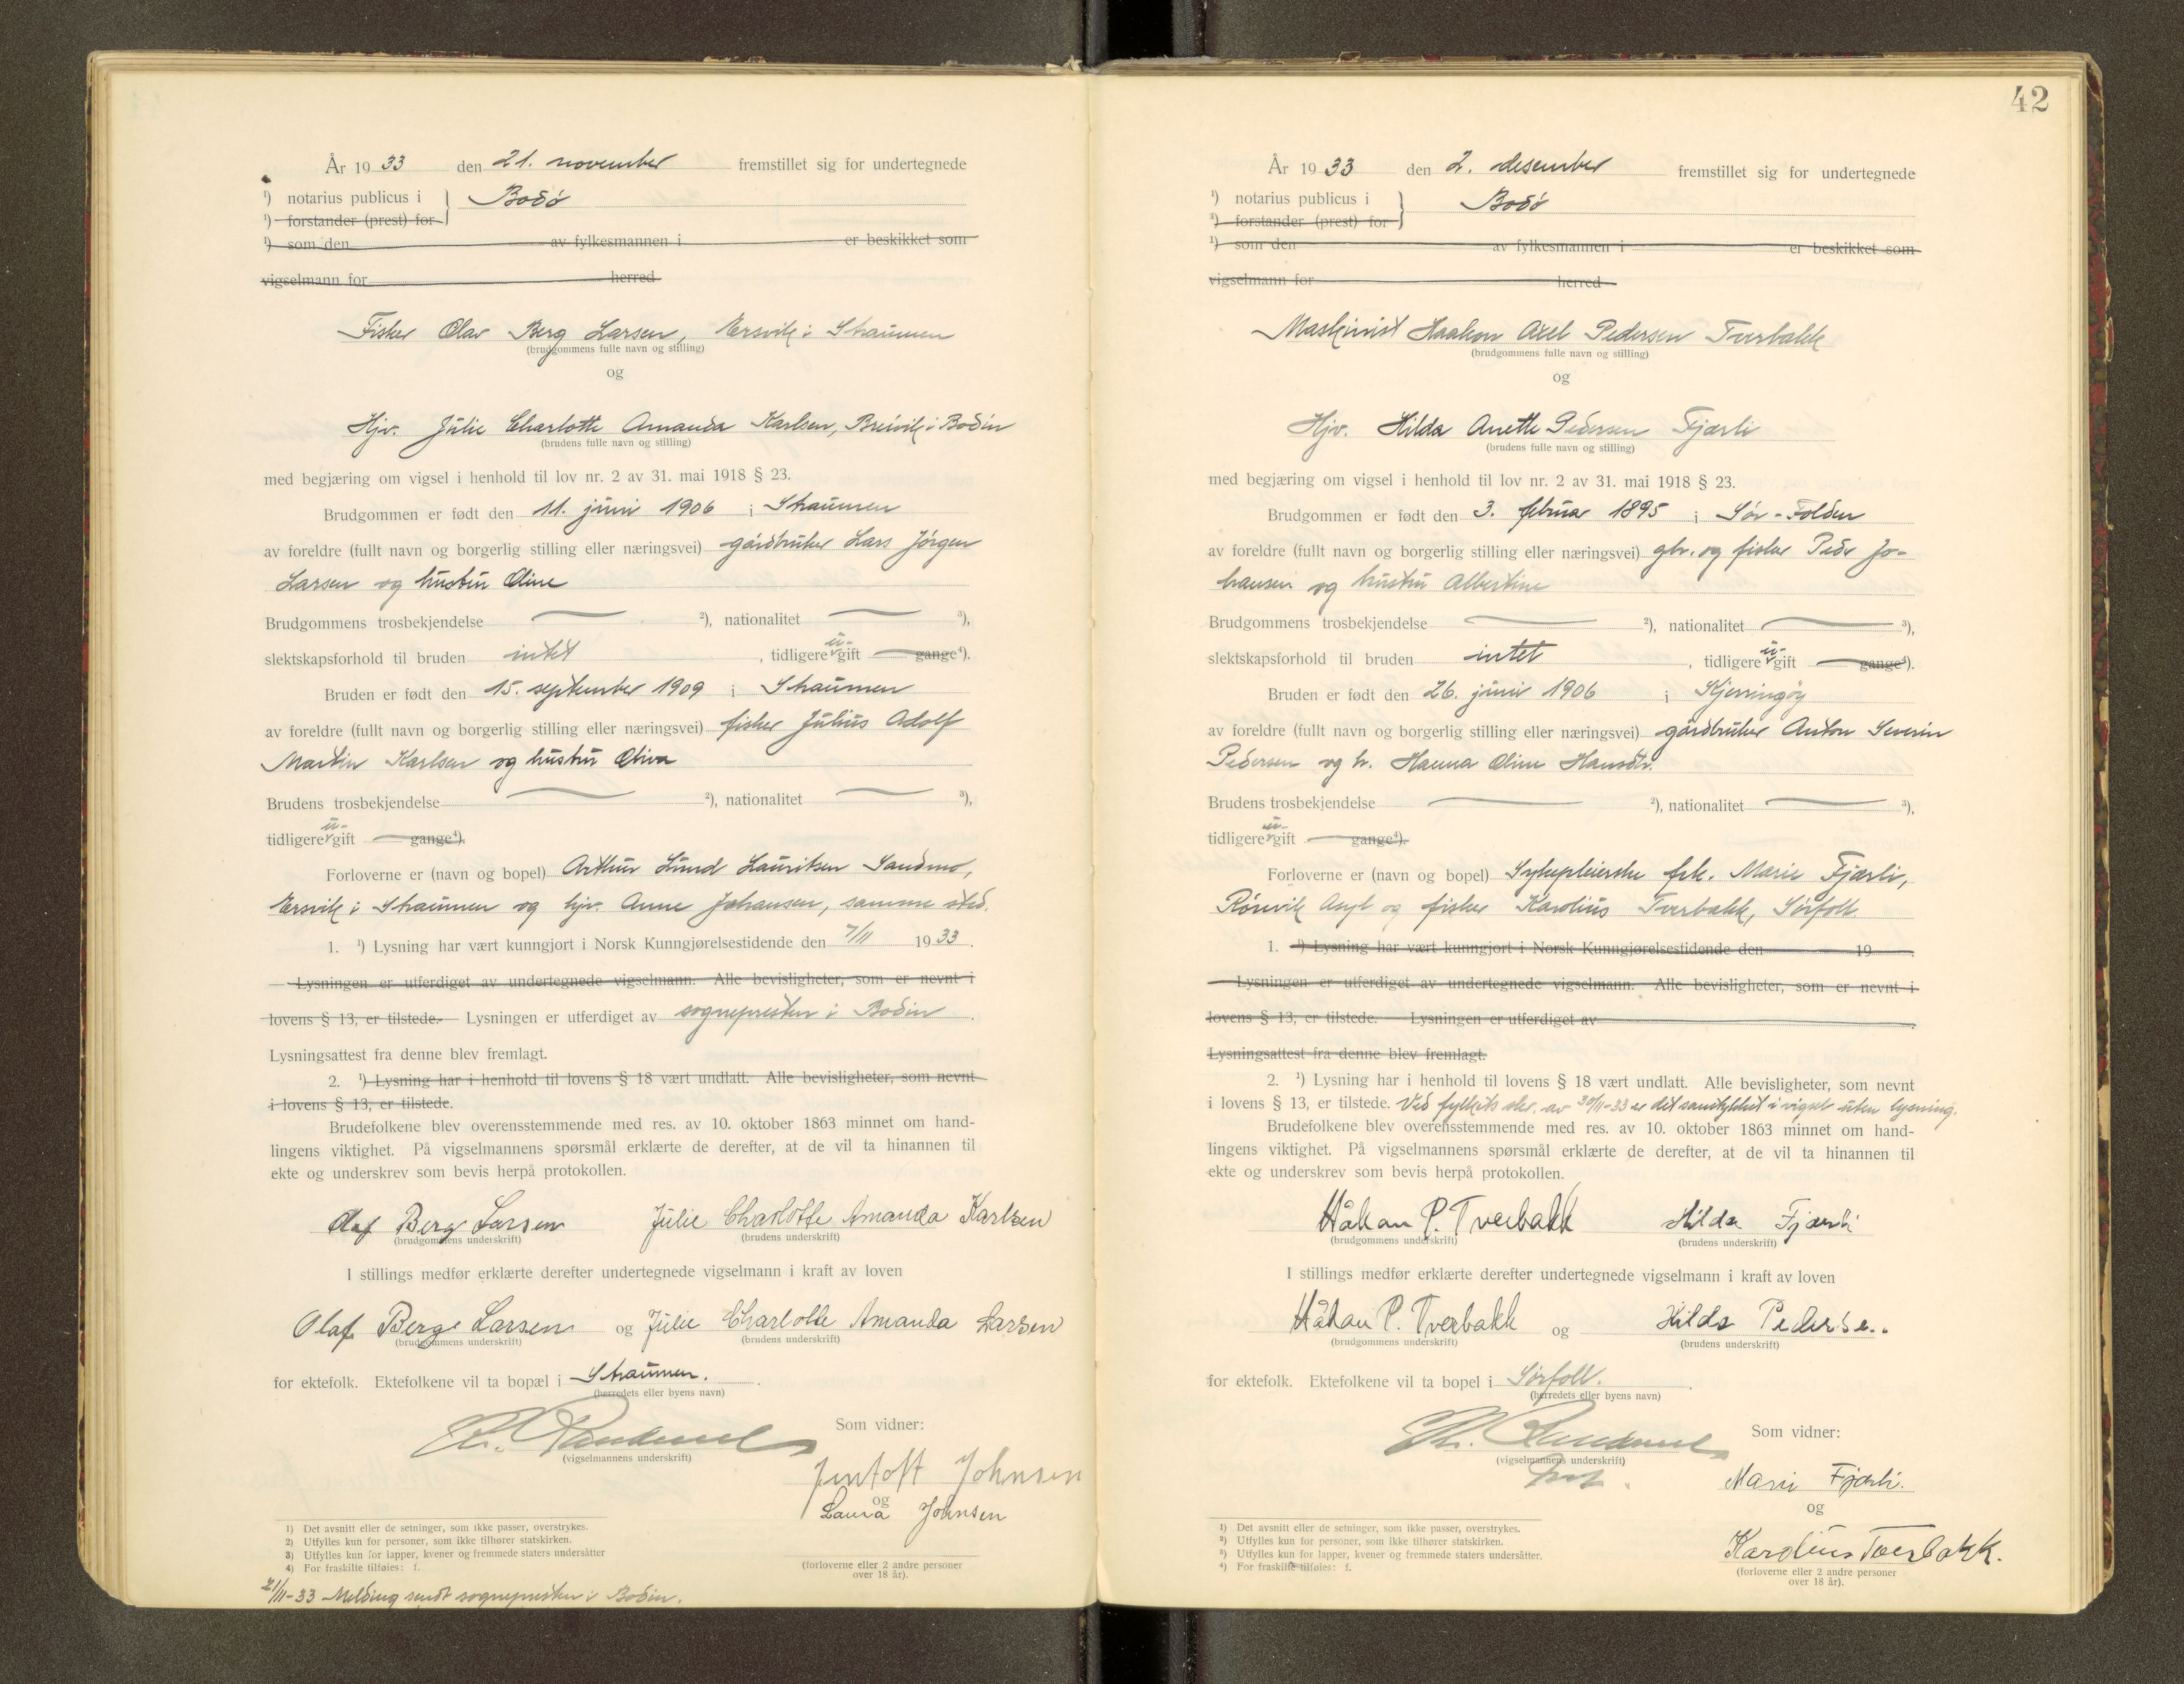 År 1933 den 21. november fremstillet sig for undertegnede
¹) notarius publicus i } Bodø
¹) forstander (prest) for
¹) som den av fylkesmannen i er beskikket som
vigselmann for herred
Fisker Olav Berg Larsen, Ersvik i Straumen
(brudgommens fulle navn og stilling)
og
Hjv. Julie Charlotte Amanda Karlsen, Breivik i Bodin
(brudens fulle navn og stilling)
med begjæring om vigsel i henhold til lov nr. 2 av 31. mai 1918 § 23.
Brudgommen er født den 11. juni 1906 i Straumen
av foreldre (fullt navn og borgerlig stilling eller næringsvei) gårdbruker Lars Jørgen
Larsen og hustru Oline
Brudgommens trosbekjendelse — ²), nationalitet — ³),
slektskapsforhold til bruden intet , tidligere u-gift gange⁴).
Bruden er født den 15. september 1909 i Straumen
av foreldre (fullt navn og borgerlig stilling eller næringsvei) fisker Julius Adolf
Martin Karlsen og hustru Oliva
Brudens trosbekjendelse — ²), nationalitet — ³),
tidligere u-gift gange⁴).
Forloverne er (navn og bopel) Arthur Lund Lauritsen Sandmo,
Ersvik i Straumen og hjv. Anne Johansen, samme sted.
1. ¹) Lysning har vært kunngjort i Norsk Kunngjørelsestidende den 7/11 1933.
Lysningen er utferdiget av undertegnede vigselmann. Alle bevisligheter, som er nevnt i
lovens § 13, er tilstede. Lysningen er utferdiget av sognepresten i Bodin .
Lysningsattest fra denne blev fremlagt.
2. ¹) Lysning har i henhold til lovens § 18 vært undlatt. Alle bevisligheter, som nevnt
i lovens § 13, er tilstede.
Brudefolkene blev overensstemmende med res. av 10. oktober 1863 minnet om hand-
lingens viktighet. På vigselmannens spørsmål erklærte de derefter, at de vil ta hinannen til
ekte og underskrev som bevis herpå protokollen.
Olaf Berg Larsen Julie Charlotte Amanda Karlsen
(brudgommens underskrift) (brudens underskrift)
I stillings medfør erklærte derefter undertegnede vigselmann i kraft av loven
Olaf Berg Larsen og Julie Charlotte Amanda Larsen
(brudgommens underskrift) (brudens underskrift)
for ektefolk. Ektefolkene vil ta bopæl i Straumen.
(herredets eller byens navn)
Som vidner:
(vigselmannens underskrift)
Jentoft Johnsen
og
Laura Johnsen
(forloverne eller 2 andre personer
over 18 år).
1) Det avsnitt eller de setninger, som ikke passer, overstrykes.
2) Utfylles kun for personer, som ikke tilhører statskirken.
3) Utfylles kun for lapper, kvener og fremmede staters undersåtter
4) For fraskilte tilføies: f.
21/11-33 Melding sendt sognepresten i Bodin.
42
År 1933 den 2. desember fremstillet sig for undertegnede
¹) notarius publicus i } Bodø
¹) forstander (prest) for
¹) som den av fylkesmannen i er beskikket som
vigselmann for herred
Maskinist Haakon Axel Pedersen Tverbakk
(brudgommens fulle navn og stilling)
og
Hjv. Hilda Anette Pedersen Fjærli
(brudens fulle navn og stilling)
med begjæring om vigsel i henhold til lov nr. 2 av 31. mai 1918 § 23.
Brudgommen er født den 3. februar 1895 i Sør-Folden
av foreldre (fullt navn og borgerlig stilling eller næringsvei) gbr. og fisker Peder Jo-
hansen og hustru Albertine
Brudgommens trosbekjendelse — ²), nationalitet — ³),
slektskapsforhold til bruden intet , tidligere u-gift gange⁴).
Bruden er født den 26. juni 1906 i Kjerringøy
av foreldre (fullt navn og borgerlig stilling eller næringsvei) gårdbruker Anton Severin
Pedersen og h. Hanna Oline Hansdtr.
Brudens trosbekjendelse — ²), nationalitet — ³),
tidligere u-gift gange⁴).
Forloverne er (navn og bopel) Sykepleierske frk. Marie Fjærli,
Rønvik Asyl og fisker Karolius Tverbakk, Sørfold
1. ¹) Lysning har vært kunngjort i Norsk Kunngjørelsestidende den 19 .
Lysningen er utferdiget av undertegnede vigselmann. Alle bevisligheter, som er nevnt i
lovens § 13, er tilstede. Lysningen er utferdiget av .
Lysningsattest fra denne blev fremlagt.
2. ¹) Lysning har i henhold til lovens § 18 vært undlatt. Alle bevisligheter, som nevnt
i lovens § 13, er tilstede. Ved fylkets skr. av 30/11-33 er det samtykket i vigsel uten lysning.
Brudefolkene blev overensstemmende med res. av 10. oktober 1863 minnet om hand-
lingens viktighet. På vigselmannens spørsmål erklærte de derefter, at de vil ta hinannen til
ekte og underskrev som bevis herpå protokollen.
Håkan P. Tverbakk Hilda Fjærli
(brudgommens underskrift) (brudens underskrift)
I stillings medfør erklærte derefter undertegnede vigselmann i kraft av loven
Håkan P. Tverbakk og Hilda Pedersen
(brudgommens underskrift) (brudens underskrift)
for ektefolk. Ektefolkene vil ta bopel i Sørfold.
(herredets eller byens navn)
Som vidner:
(vigselmannens underskrift)
Marie Fjærli.
og
Karolius Tverbakk.
(forloverne eller 2 andre personer
over 18 år).
¹) Det avsnitt eller de setninger, som ikke passer, overstrykes.
²) Utfylles kun for personer, som ikke tilhører statskirken.
³) Utfylles kun for lapper, kvener og fremmede staters undersåtter.
⁴) For fraskilte tilføies: f.